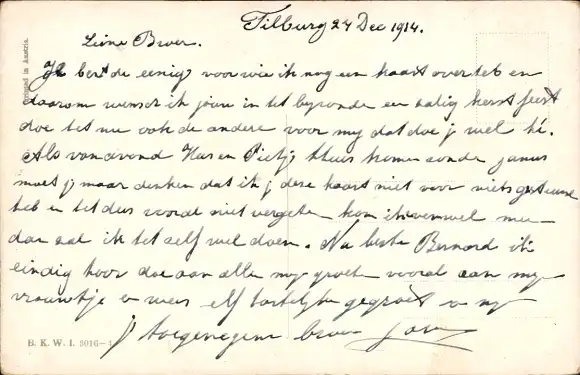 Tilburg 24 Dec 1914.
Printed in Austria.
Lieve Broer.
Jij bent de eenig voor wie ik nog een kaart over heb en
daarom wensch ik jouw in het byzonde een zalig kerstfeest
doe het nu ook de andere voor my dat doe j wel hé.
Als vanavond Kar en Pietj thuis komen zonde Janus
moet j maar denken dat ik j deze kaart niet voor niets gestuurd
heb en het dus vooral niet vergeten kom ik evenwel mee
dan zal ik het zelf wel doen. Nu beste Bernard ik
eindig hoor doe aan allen my groet vooral aan my
vrouwtje en wees zelf hartelijk gegroet v my
j toegenegen broer
B. K. W. I. 3016-